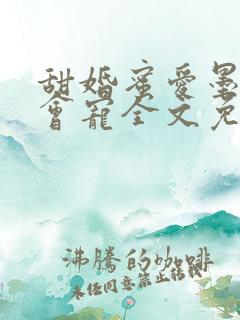 甜婚蜜爱墨
会宠全文免
沸腾的咖啡
未经同意禁止转载